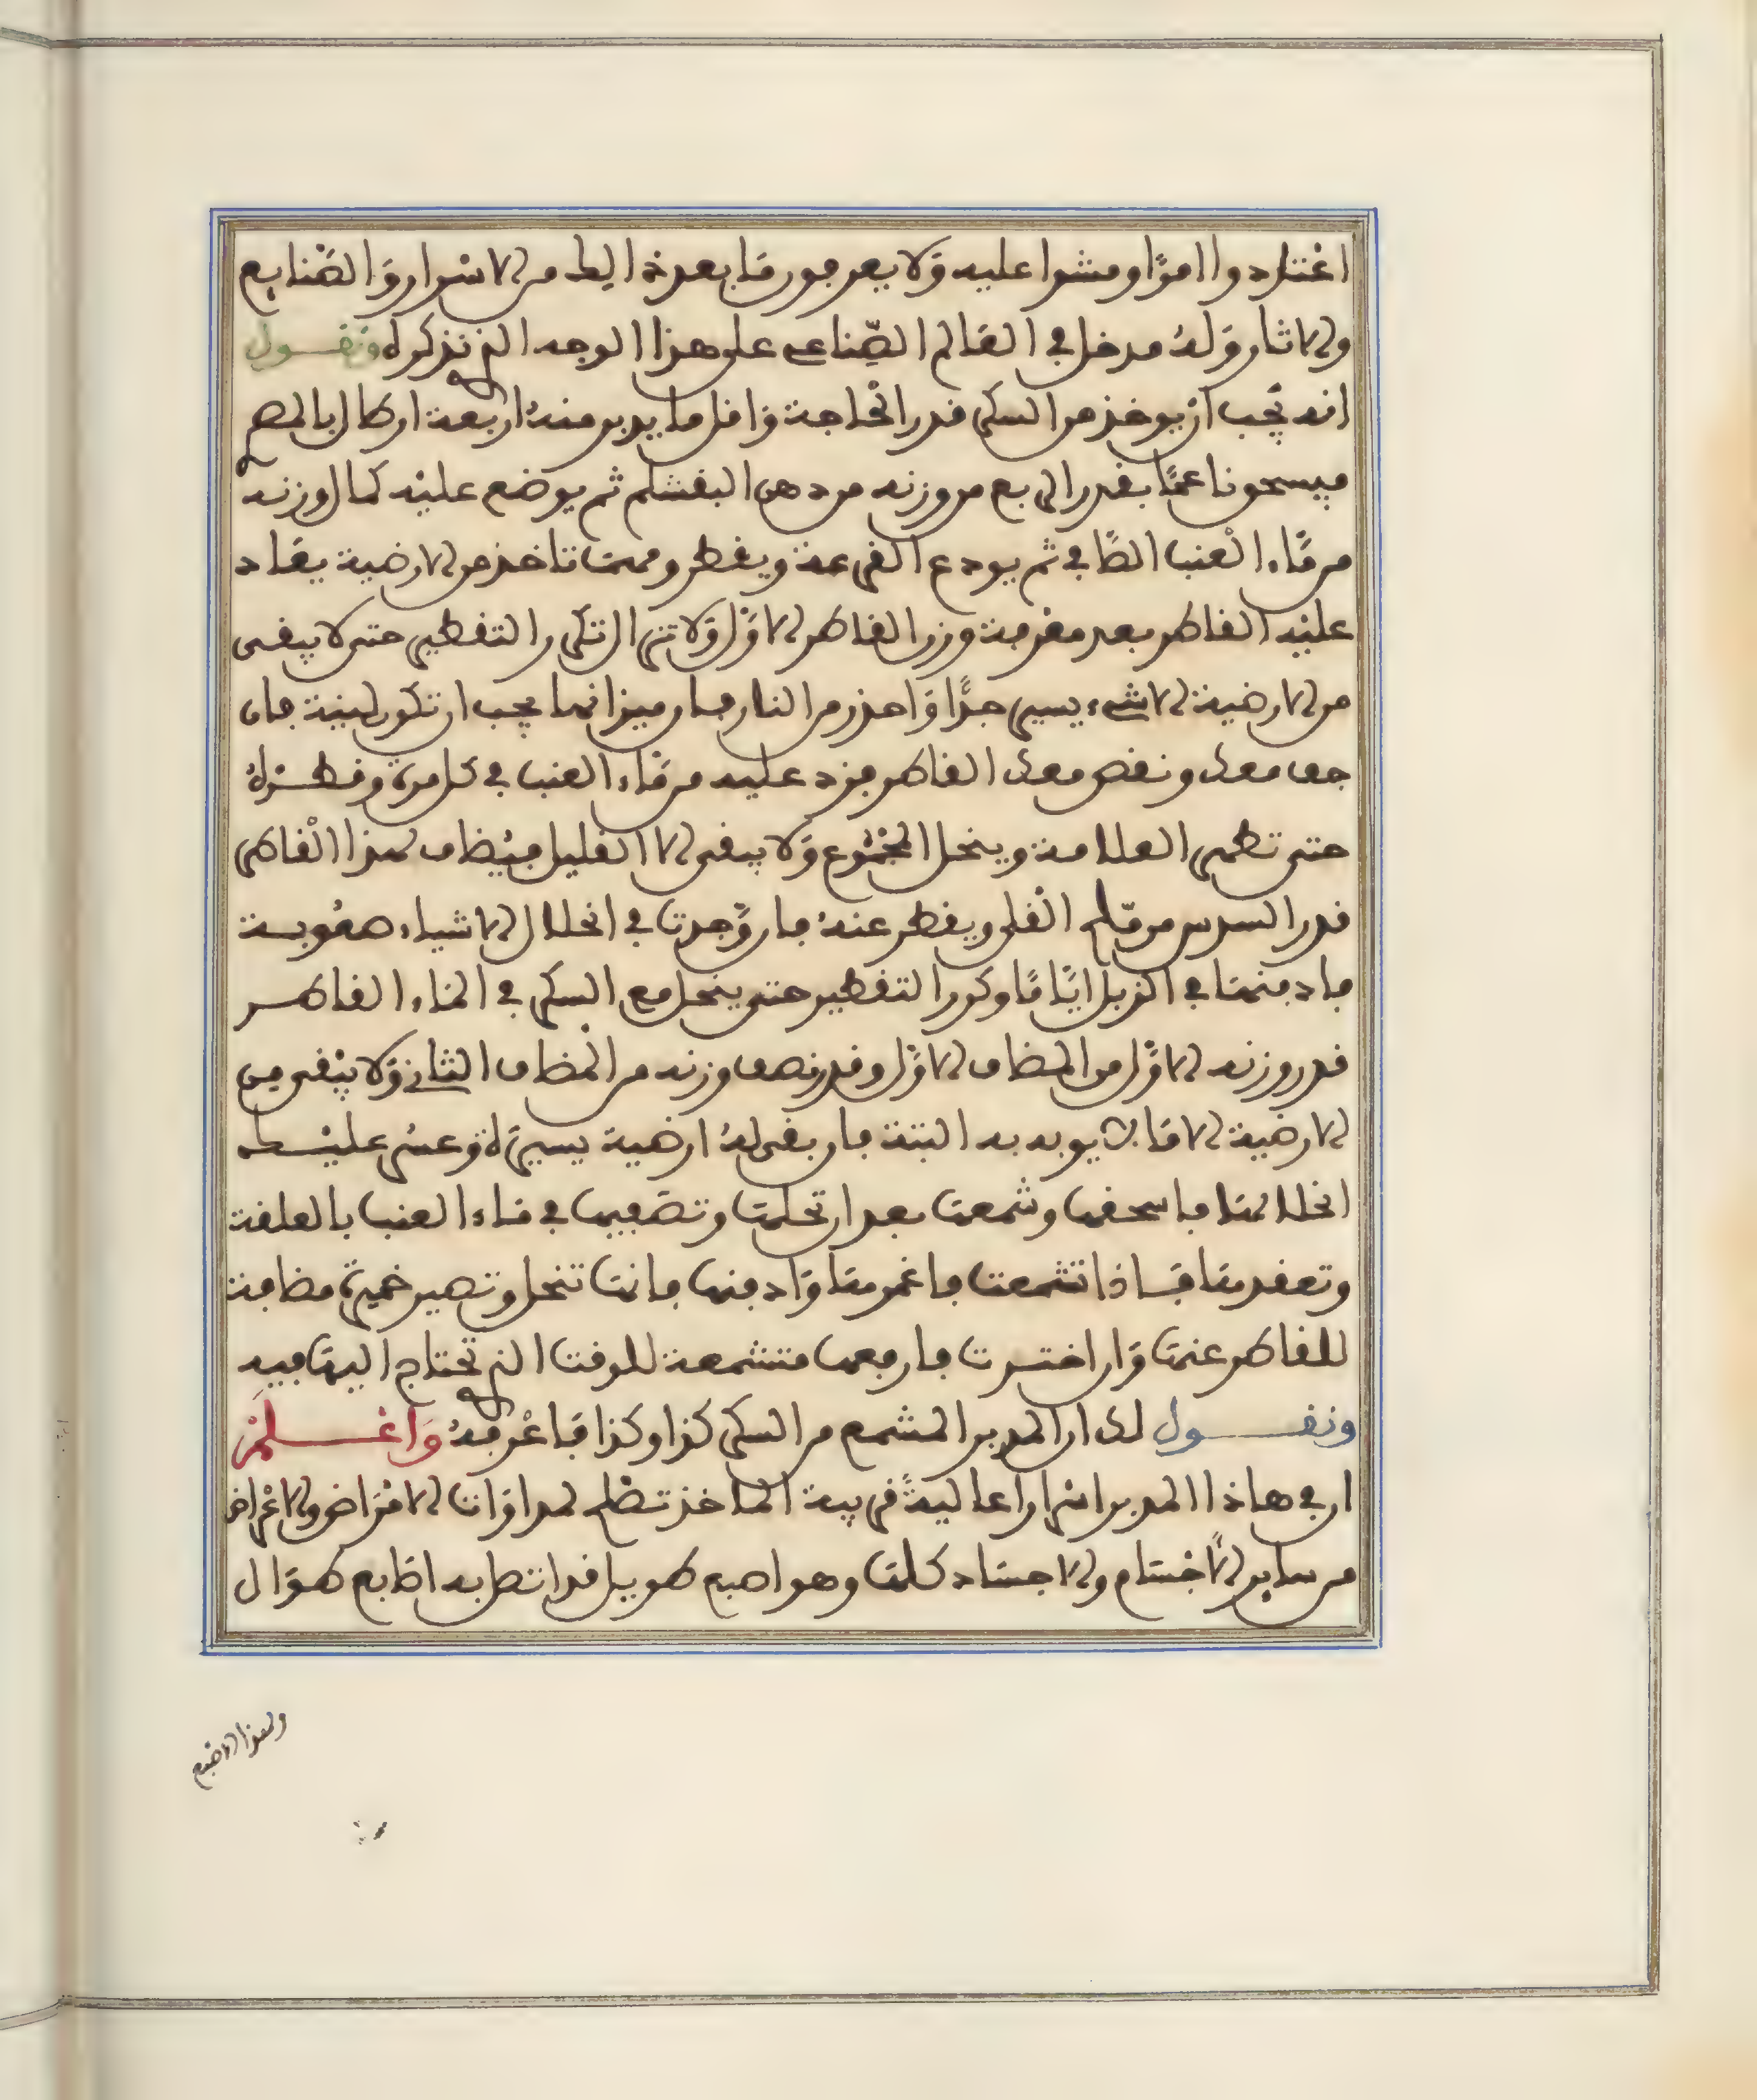 اعتادوا امرًا ومشوا عليه ولا يعرفون ما بعد ذالك من الاسرار والصنايع
والاثار وله مدخل في العالم الصناعي على هذا الوجه الذي نذكره ونقول
انه يجب ان يوخذ من السكر قدر الحاجة واقل ما يدبر منه اربعة ارطال بالمصري
فيسحق ناعمًا بقدر الربع من وزنه من دهن البقسم ثم يوضع عليه كمال وزنه
من ماء العنب الصافي ثم يودع القرعة ويقطر ومهما تاخذ من الارضية يعاد
عليه القاطر بعد معرفة وزن القاطر الاول ولا تزال تكرر التقطير حتى لا يبقى
من الارضية الا شيء يسير جدًّا واحذر من النار فان ميزانها يجب ان تكون لينية فان
جف معك ونقص معك القاطر فزد عليه من ماء العنب في كل مرة وقطره
حتى تظهر العلامة وينحل المجموع ولا يبقى الا القليل فيضاف لهذا القاطر
قدر السدس من ملح القلي ويقطر عنه فان وجدت في انحلال الاشياء صعوبة
فادفنها في الزبل ايامًا وكرر التقطير حتى ينحل مع السكر في الماء القاطر
قدر وزنه الاول من المضاف الاول وقدر نصف وزنه من المضاف الثاني ولا يبقى من
الارضية الا ما لا يوبه به البتة فان بقى له ارضية يسيرة وعسر عليك
انحلالها فاسحقها وشمعها بعد ان تحلها وتضعيها في ماء العنب بالعلقة
وتعقدها فاذا تشمعت فاغمرها وادفنها فانها تنحل وتصير خميرة مضافة
للقاطر عنها وان اخترت فارفعها متشمعة للوقت الذي تحتاج اليها فيه
ونقول لك ان المدبر المشمع من السكر كذا وكذا فاعرفه واعلمن
ان في هاذا المدبر اسرارا عالية قريبة الماخذ تصلح لمداوات الامراض والاعراض
من ساير الاجسام والاجساد كلها وهو اصبع طويل قد اتصل به اصابع طوال
وهذا الاصبع